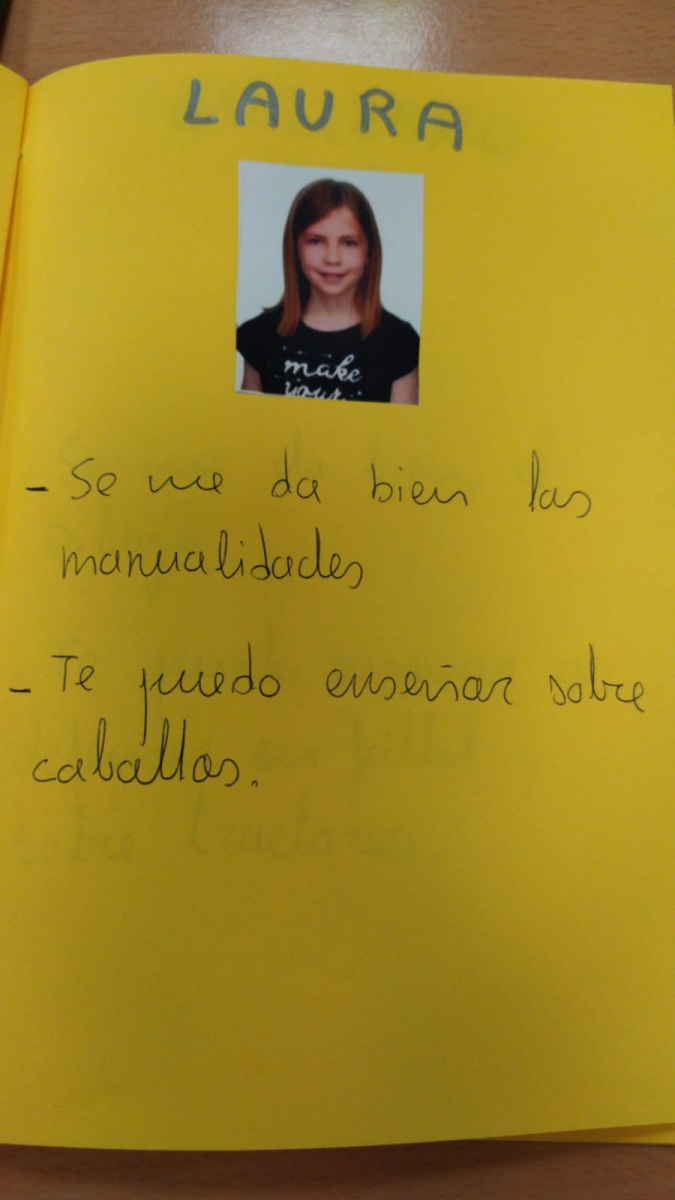 LAURA
make
your
- Se me da bien las
manualidades
- Te puedo enseñar sobre
caballos.
sobre tractores.